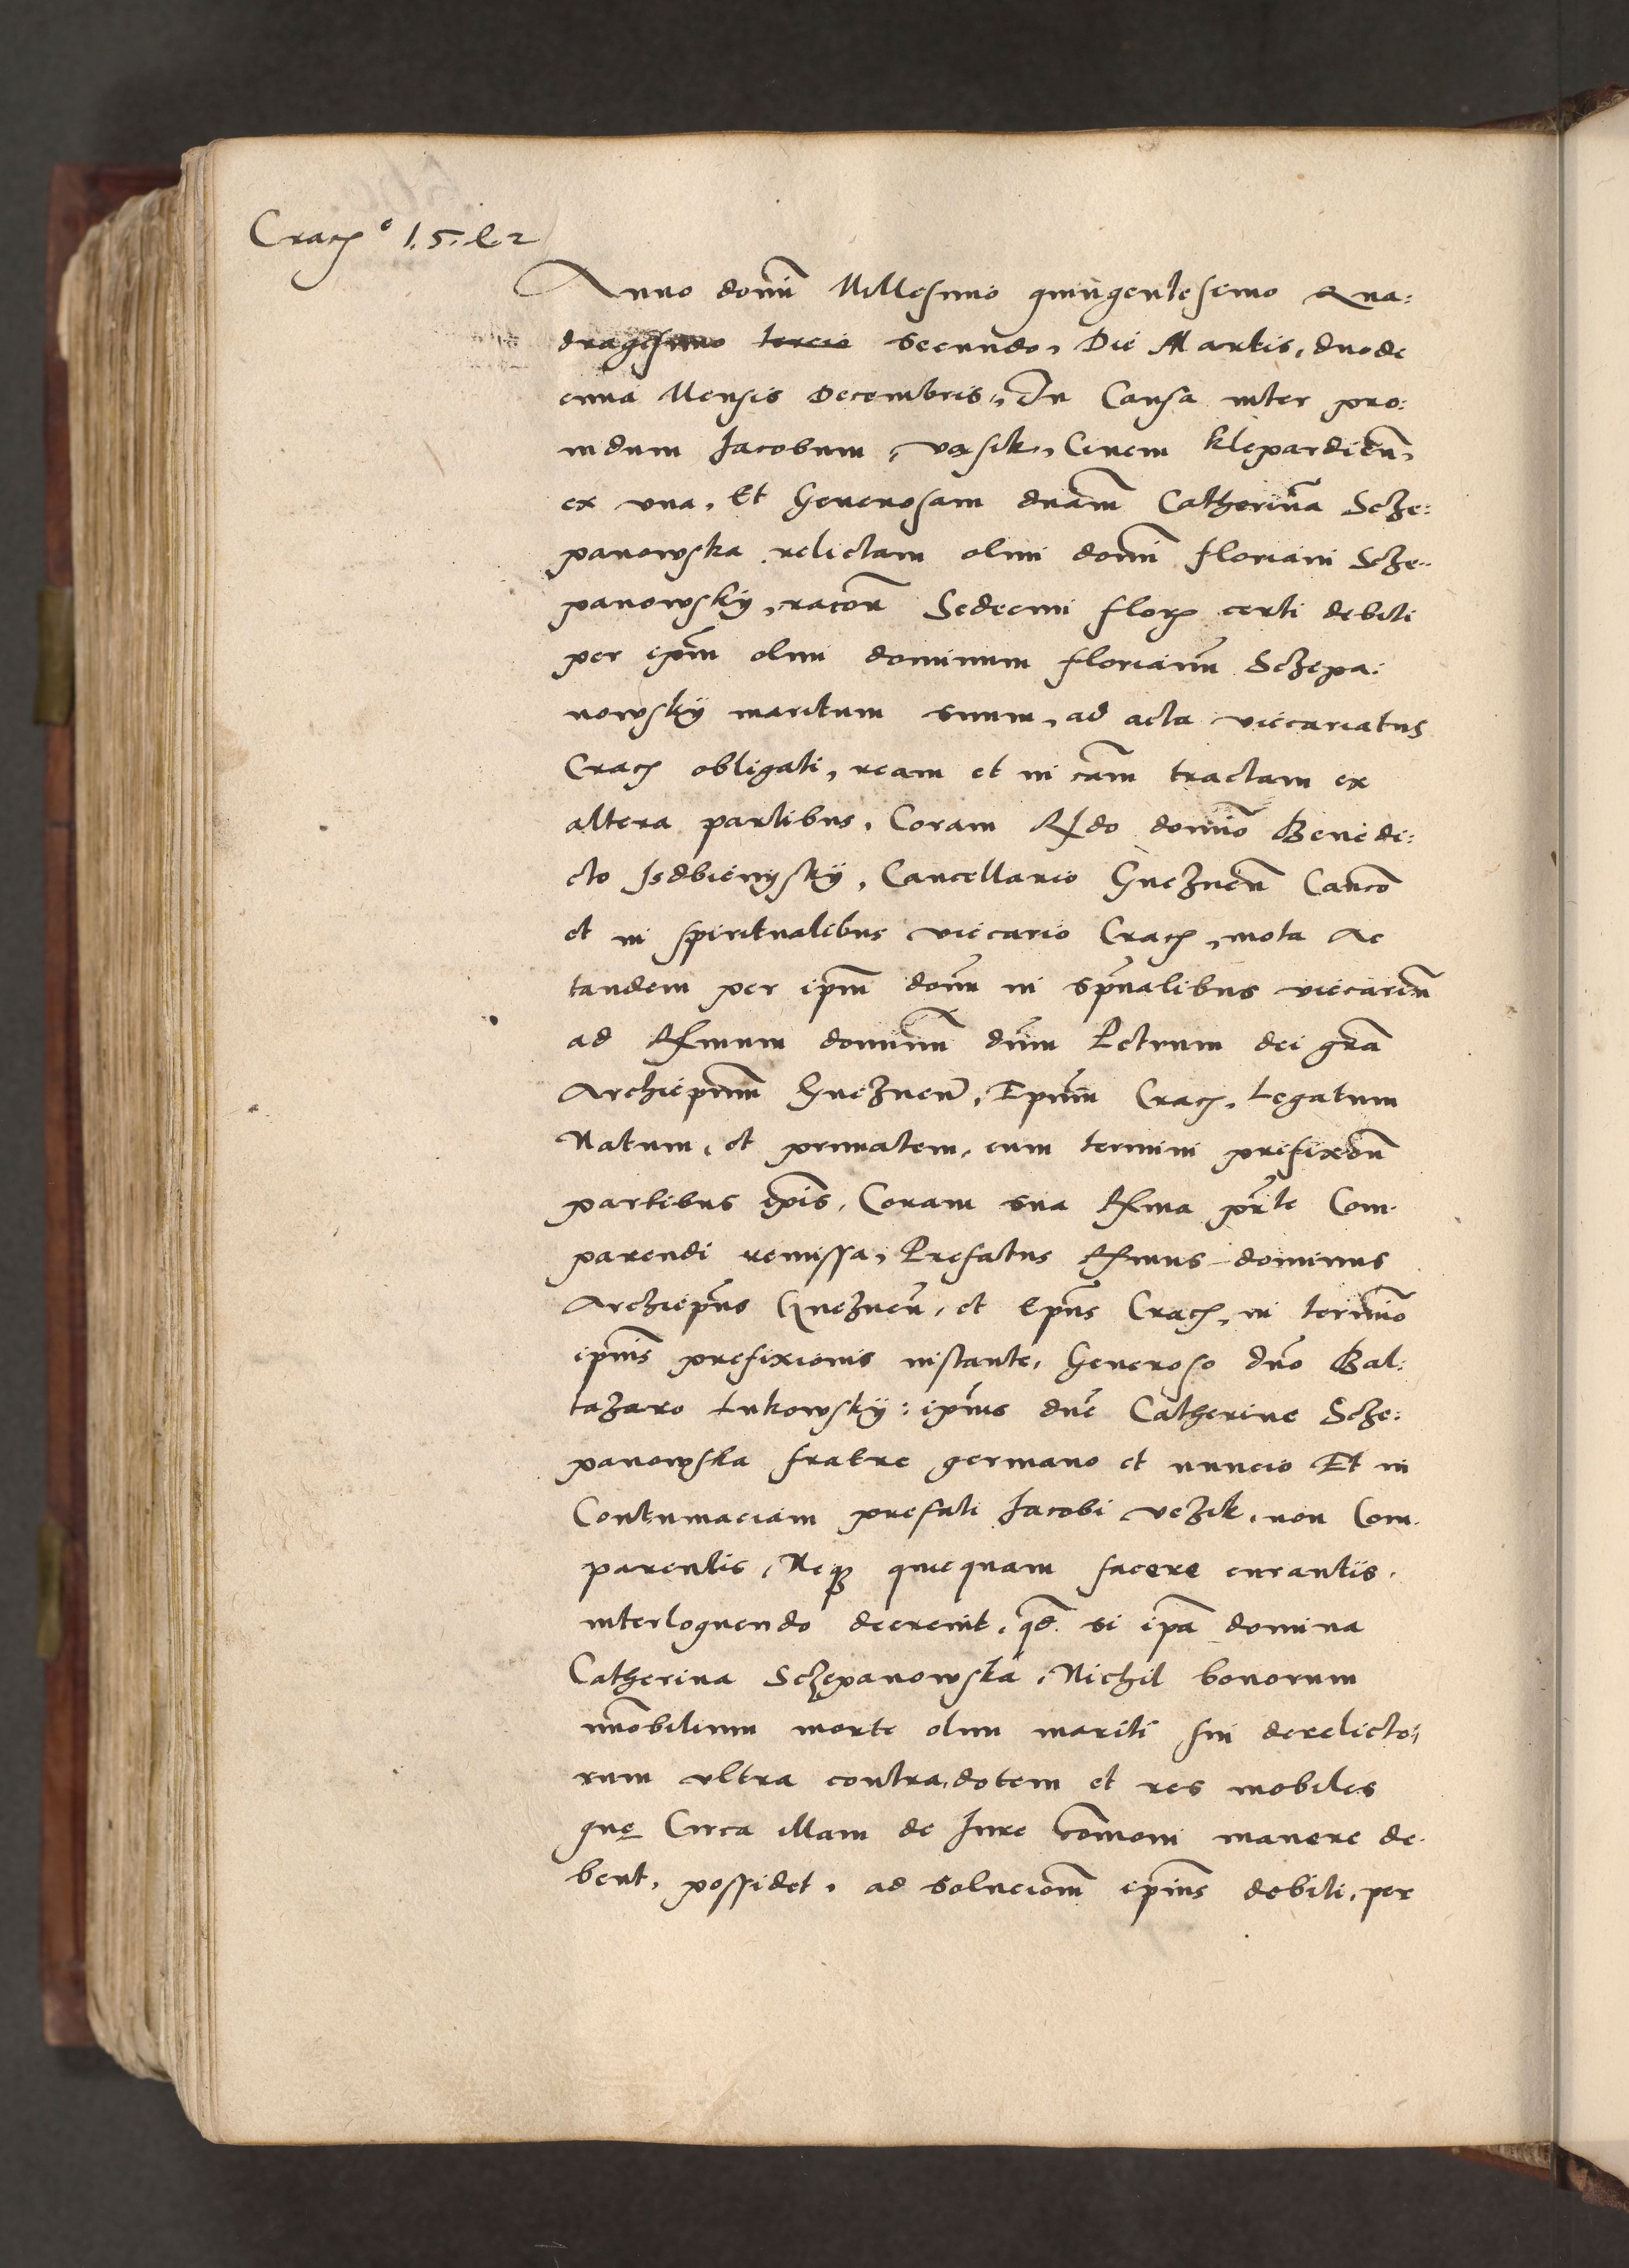 Cracẜ 1.5.4.2
Anno domĩ Millesimo quingentesimo Qua:
dragesimo tercio secundo, Die Martis, duode
cima Mensis Decembris, In Causa inter pro:
uidum Jacobum, Vesik, Ciuem Klepardień,
ex vna, Et Generosam dnam̃ Catherinã Scze:
panowska relictam olim domĩ Floriani Scze:
panowsky, racoñ Sedecim floꝝ certi debiti
per ipm̃ olim dominum Florianũ Sczepa:
nowsky maritum suum, ad acta viccariatus
Cracẜ obligati, ream et in cãm tractam ex
altera partibus, Coram R̃do domĩo Benedi:
cto Isdbienysky, Cancellario Gnezneñ Canco
et in spiritualibus viccario Cracẜ, mota Ac
tandem per ipm̃ dom̃ in spũalibus viccariũ
ad R̃mum dominũ dũm Petrum dei grã
Archiepũm Gnezneñ, Epũm Cracẜ, Legatum
Natum, et primatem, cum termini prefixõn
partibus ip̃is, Coram sua R̃ma pr̃te Com-
parendi remissa, Prefatus R̃mus dominus
Archiep̃us Gnezneñ, et Ep̃us Cracẜ, in termĩo
ip̃ius prefixionis instante, Generoso dño Bal:
tazaro Lukowsky: ip̃ius dñe Catherine Scze:
panowska fratre germano et nuncio Et in
Contumaciam prefati Jacobi Vezik, non Com-
parentis, Neqꝫ quicquam facere curantis,
interloquendo decreuit, qd̃ si ipã domina
Catherina Sczepanowska, Nichil bonorum
im̃obilium morte olim mariti sui derelicto:
rum vltra contra dotem et res mobiles
que Circa illam de Jure com̃oni manere de-
bent, possidet, ad solucioñm ip̃ius debiti, per